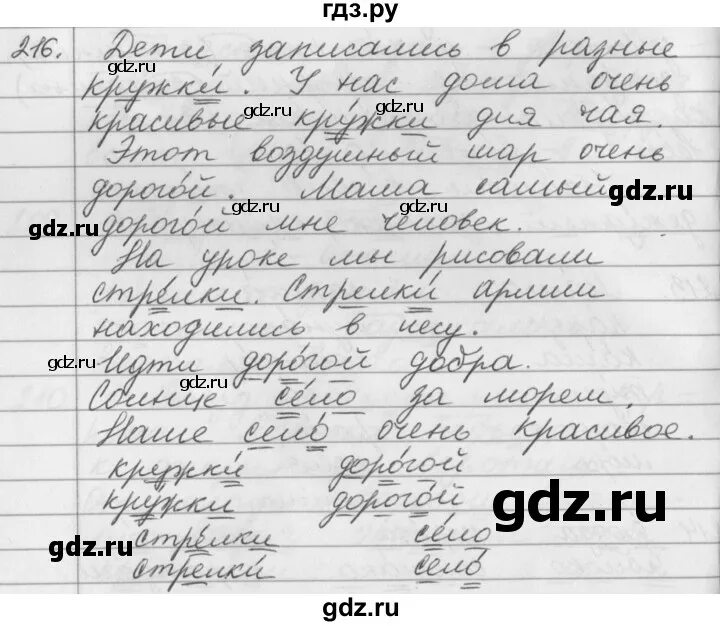 гдз.ру
216. Дети записались в разные
кружки́. У нас дома очень
красивые кру́жки для чая.
Этот воздушный шар очень
дорого́й. Мама самый
дорого́й мне человек.
На уроке мы рисовали
стре́лки. Стрелки́ армии
находились в лесу.
Идти доро́гой добра.
Солнце се́ло за морем.
Наше село́ очень красивое.
кружки́ доро́гой
кру́жки дорого́й
стре́лки се́ло
стрелки́ село́
gdz.ru
gdz.ru
gdz.ru
gdz.ru
gdz.ru
gdz.ru
gdz.ru
gdz.ru
gdz.ru
gdz.ru
gdz.ru
gdz.ru